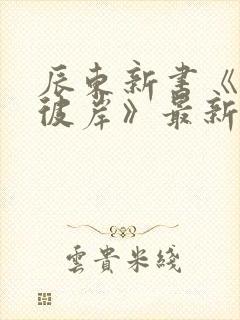 辰东新书《
彼岸》最新
雲貴米綫